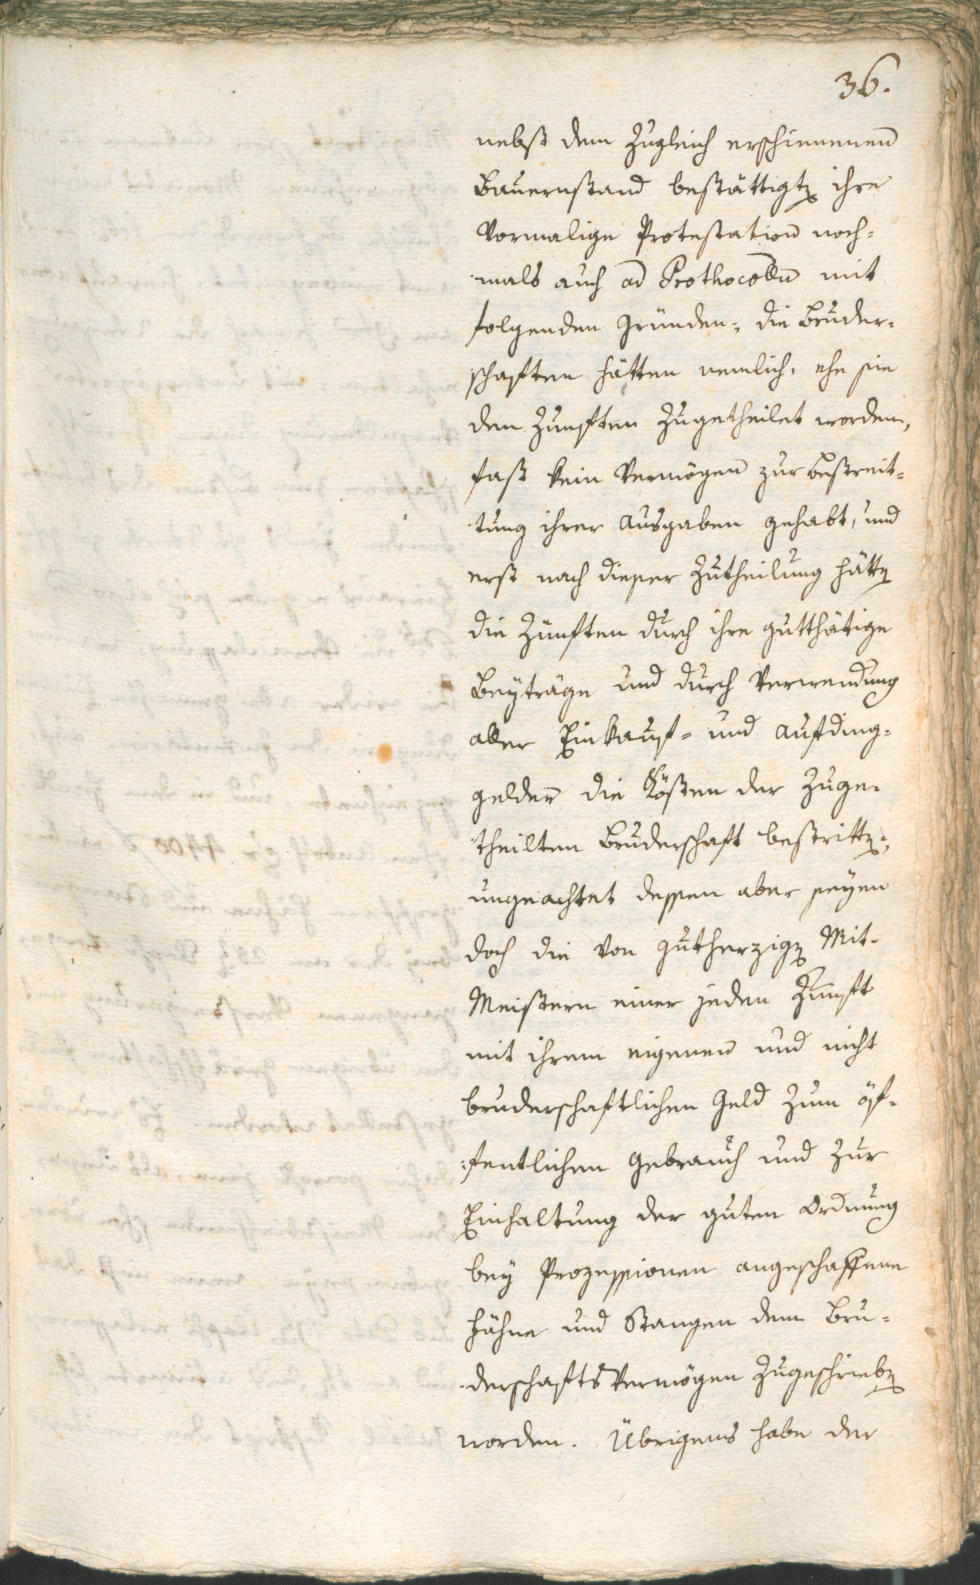 36.
nebst dem Zugleich erschienenen
Bauernstand bestättigten ihre
Vormalige Protestation noch-
mals auch ad Prothocollum mit
folgenden Gründen: die Bruder-
schaften hätten nemlich, ehe sie
den Zunften Zugetheilet worden,
fast kein Vermögen zur Bestreit-
tung ihrer Ausgaben gehabt, und
erst nach dieser Zutheilung hätten
die Zünften durch ihre gutthätige
Beyträge und durch Verwendung
aller Einkauf- und Aufding-
gelder die Kösten der Zuge-
theilten Bruderschaft bestritten;
ungeachtet dessen aber seyen
doch die von gutherzigen Mit-
Meistern einer jeden Zunft
mit ihrem eigenen und nicht
bruderschaftlichen Geld zum öf-
fentlichen Gebrauch und Zur
Einhaltung der guten Ordnung
bey Prozessionen angeschaffene
Fähne und Stangen dem Bru-
derschafts Vermögen Zugeschrieben
worden. Übrigens habe der